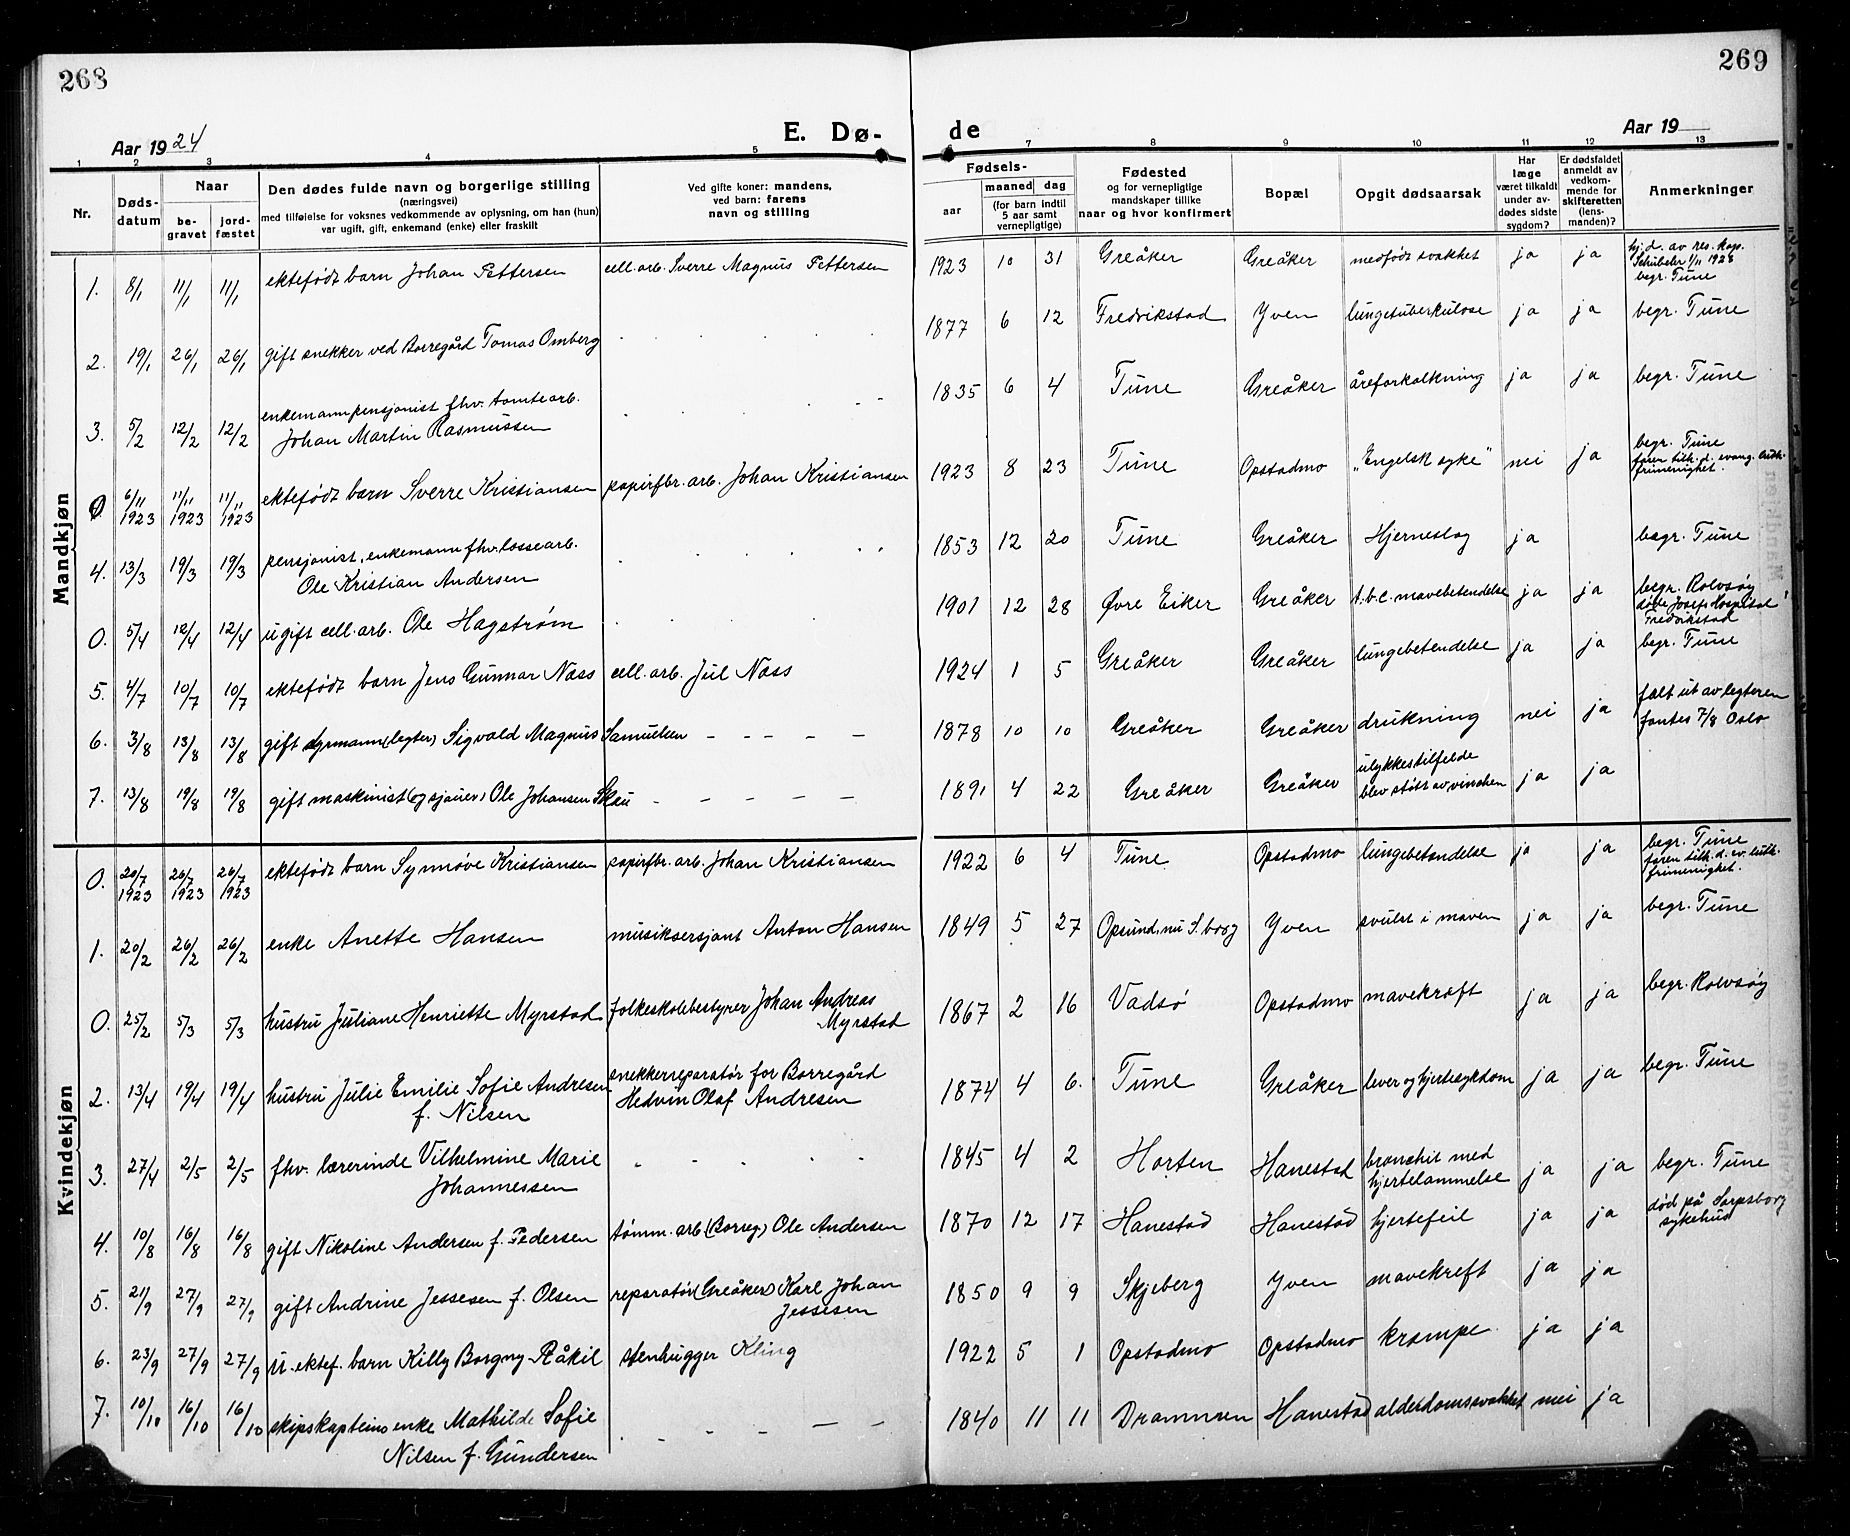 268
269
Aar 1924
E. Dø-
de
Aar 19
1 2 3 4 5 6 7 8 9 10 11 12 13
Nr.
Døds-
datum
Naar
be-
gravet
jord-
fæstet
Den dødes fulde navn og borgerlige stilling
(næringsvei)
med tilføielse for voksnes vedkommende av oplysning, om han (hun)
var ugift, gift, enkemand (enke) eller fraskilt
Ved gifte koner: mandens,
ved barn: farens
navn og stilling
Fødsels-
aar
maaned
dag
(for barn indtil
5 aar samt
vernepligtige)
Fødested
og for vernepligtige
mandskaper tillike
naar og hvor konfirmert
Bopæl
Opgit dødsaarsak
Har
læge
været tilkaldt
under av-
dødes sidste
sygdom?
Er dødsfaldet
anmeldt av
vedkom-
mende for
skifteretten
(lens-
manden)?
Anmerkninger
Mandkjøn
1. 8/1 11/1 11/1 ektefødt barn Johan Pettersen cell. arb. Sverre Magnus Pettersen 1923 10 31 Greåker Greåker medfødt svakhet ja ja hj. d. av res. kap.
Schübeler 1/11 1923
begr. Tune
2. 19/1 26/1 26/1 gift snekker ved Borregård Tomas Omberg 1877 6 12 Fredrikstad Yven lungetuberkulose ja ja begr. Tune
3. 5/2 12/2 12/2 enkemann pensjonist fhv. tomtearb.
Johan Martin Rasmussen 1835 6 4 Tune Greåker åreforkalkning ja ja begr. Tune
0 6/11 1923 11/11 1923 11/11 1923 ektefødt barn Sverre Kristiansen papirfbr. arb. Johan Kristiansen 1923 8 23 Tune Opstadmo "Engelsk syke" nei ja begr. Tune
faren tilh. d. evang. luth.
frimenighet.
4. 13/3 19/3 19/3 pensjonist, enkemann fhv. lossearb.
Ole Kristian Andersen 1853 12 20 Tune Greåker Hjerneslag ja begr. Tune
0. 5/4 12/4 12/4 ugift cell. arb. Ole Hagstrøm 1901 12 28 Øvre Eiker Greåker t.b.c. mavebetendelse ja ja begr. Rolvsøy
døde Josefs Hospital
Fredrikstad
5. 4/7 10/7 10/7 ektefødt barn Jens Gunnar Næss cell. arb. Jul Næss 1924 1 5 Greåker Greåker lungebetendelse ja ja begr. Tune
6. 3/8 13/8 13/8 gift styrmann (legter) Sigvald Magnus Samuelsen 1878 10 10 Greåker Greåker drukning nei ja falt ut av legteren
fantes 7/8 Oslo
7. 13/8 19/8 19/8 gift maskinist (og sjauer) Ole Johansen Skau 1891 4 22 Greåker Greåker ulykkestilfelde
blev støtt av vinchen ja ja
Kvindekjøn
0. 20/7 1923 26/7 1923 26/7 1923 ektefødt barn Synnøve Kristiansen papirfbr. arb. Johan Kristiansen 1922 6 4 Tune Opstadmo lungebetendelse ja ja begr. Tune
faren tilh. d. ev. luth.
frimenighet.
1. 20/2 26/2 26/2 enke Anette Hansen musiksersjant Anton Hansen 1849 5 27 Opsund, nu S.borg Yven svulst i maven ja ja begr. Tune
0. 25/2 5/3 5/3 hustru Juliane Henriette Myrstad folkeskolebestyrer Johan Andreas
Myrstad 1867 2 16 Vadsö Opstadmo mavekræft ja ja begr. Rolvsøy
2. 13/4 19/4 19/4 hustru Julie Emilie Sofie Andresen
f. Nilsen snekkerreparatør for Borregård
Hedvin Olaf Andresen 1874 4 6. Tune Greåker lever og hjertesykdom ja ja begr. Tune
3. 27/4 2/5 2/5 fhv. lærerinde Vilhelmine Marie
Johannessen 1845 4 2 Horten Hanestad bronchit med
hjertelammelse ja ja begr. Tune
4. 10/8 16/8 16/8 gift Nikoline Andersen f. Pedersen tømm. arb. (Borreg) Ole Andersen 1870 12 17 Hanestad Hanestad hjertefeil ja ja død på Sarpsborg
sykehus
5. 21/9 27/9 27/9 gift Andrine Jessesen f. Olsen reparatør (Greåker) Karl Johan
Jessesen 1850 9 9 Skjeberg Yven mavekreft ja ja
6. 23/9 27/9 27/9 u. ektef. barn Killy Borgny Råkil stenhugger Kling 1922 5 1 Opstadmo Opstadmo krampe ja ja
7. 10/10 16/10 16/10 skipskapteins enke Mathilde Sofie
Nilsen f. Gundersen 1840 11 11 Drammen Hanestad alderdomssvakhet nei ja